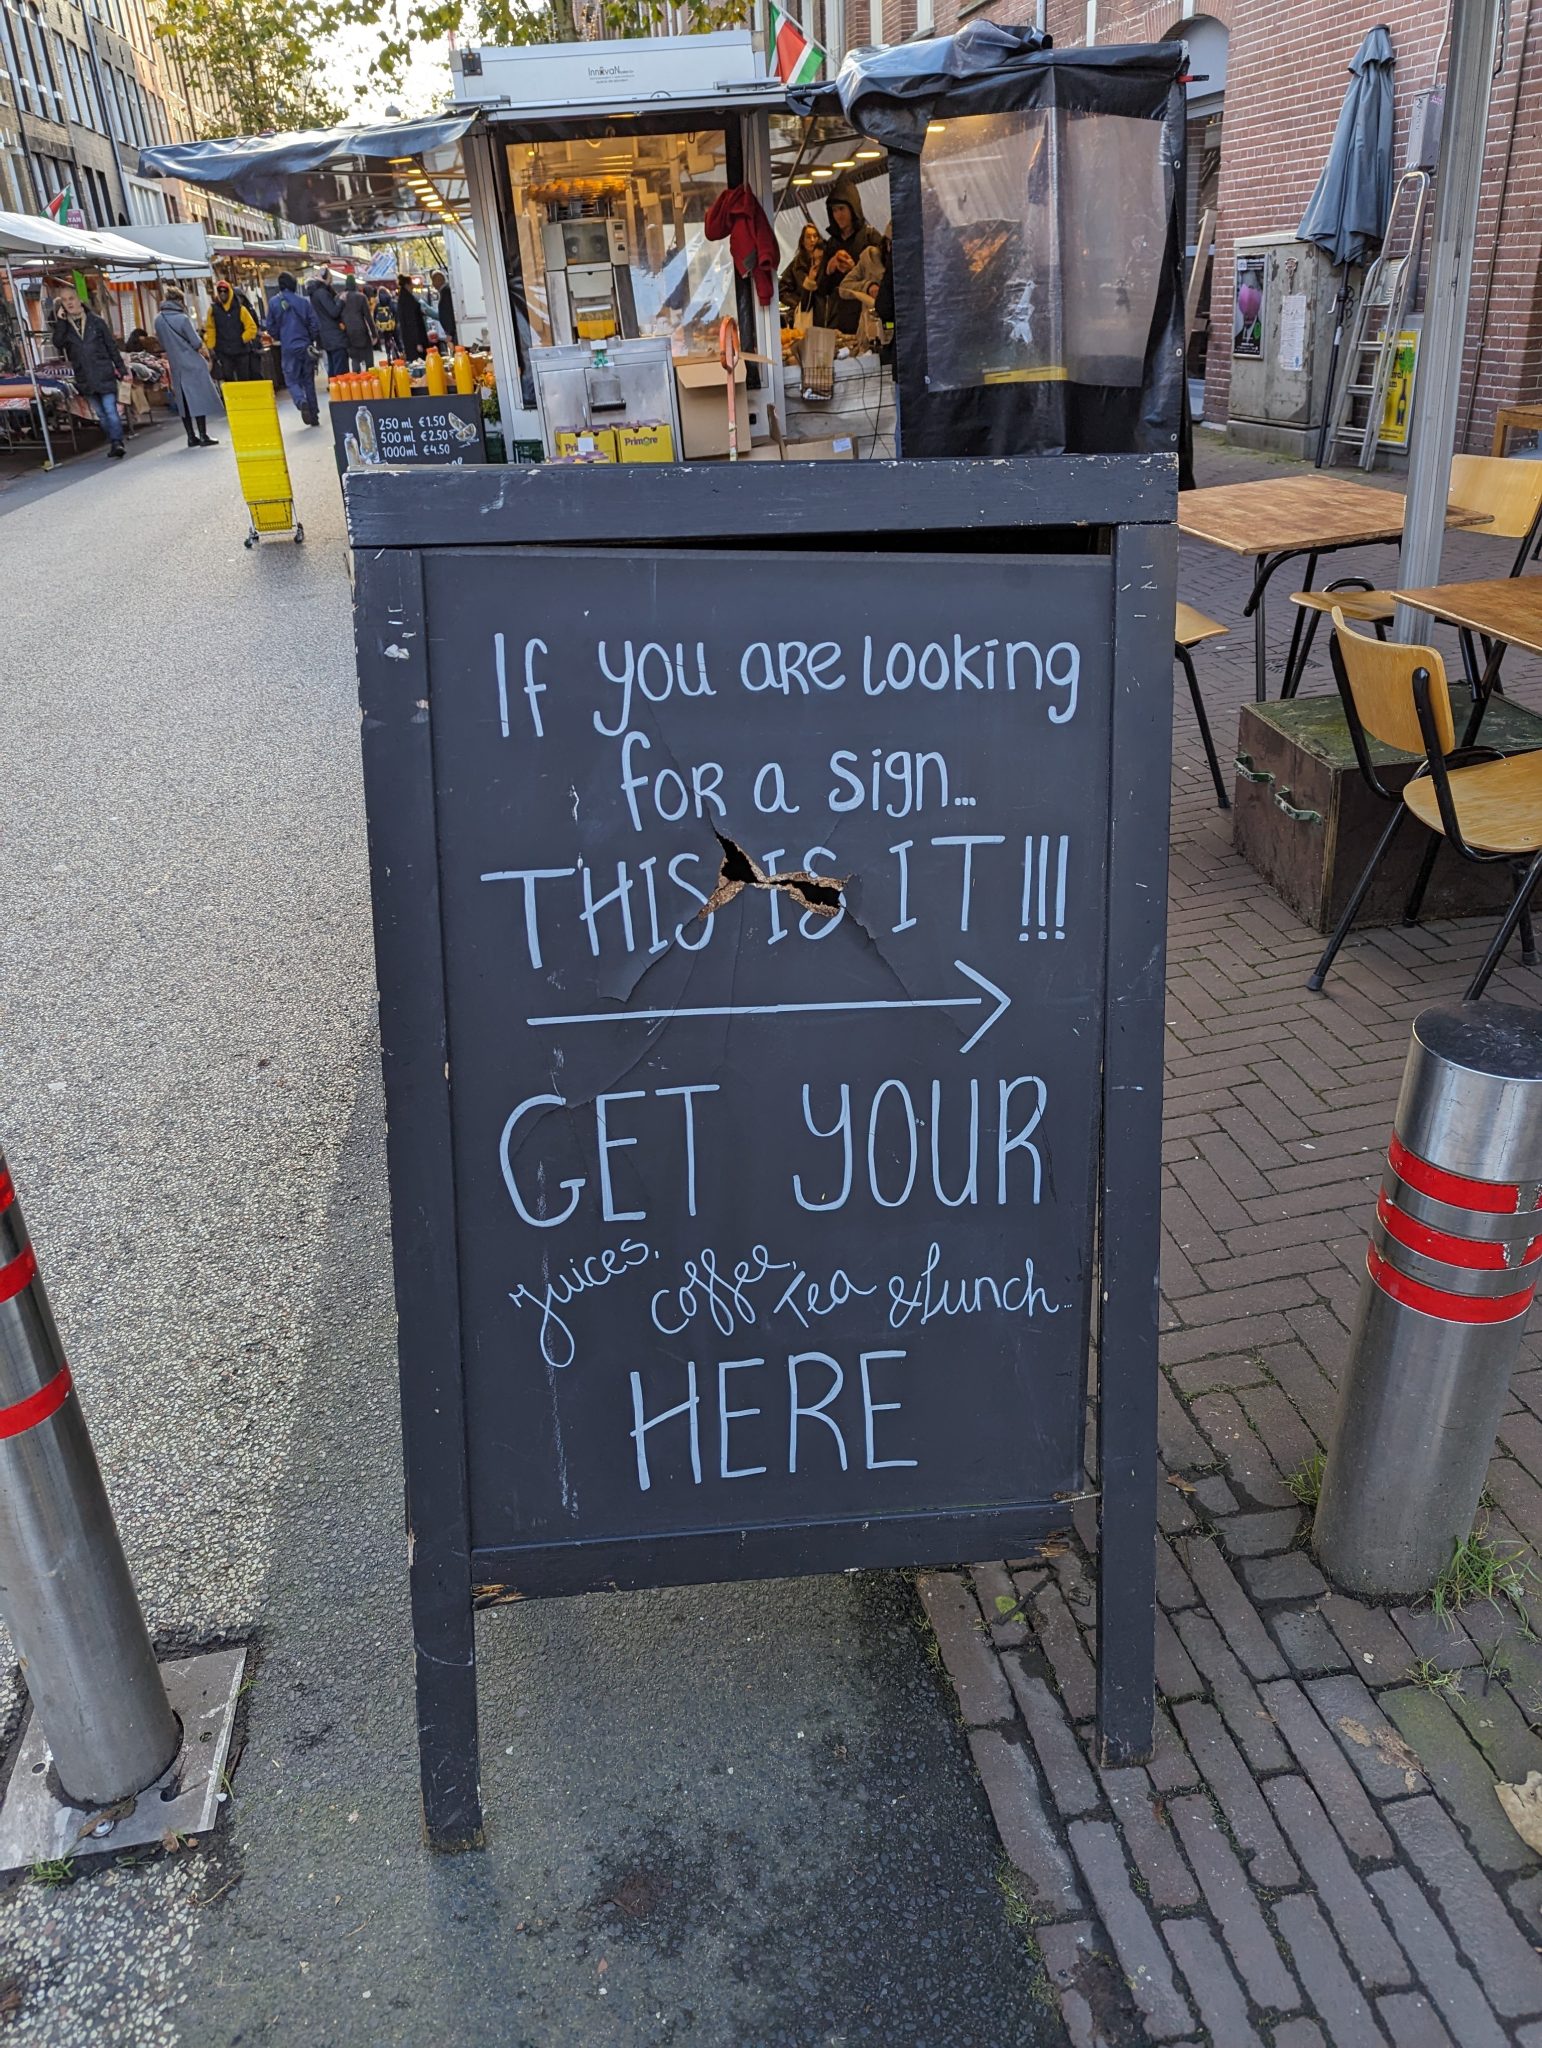 InnovaN
250 ml €1.50
500 ml €2.50
1000ml €4.50
Primore
If you are looking
for a sign...
THIS IS IT!!!
GET YOUR
Juices, coffee, Tea & Lunch...
HERE